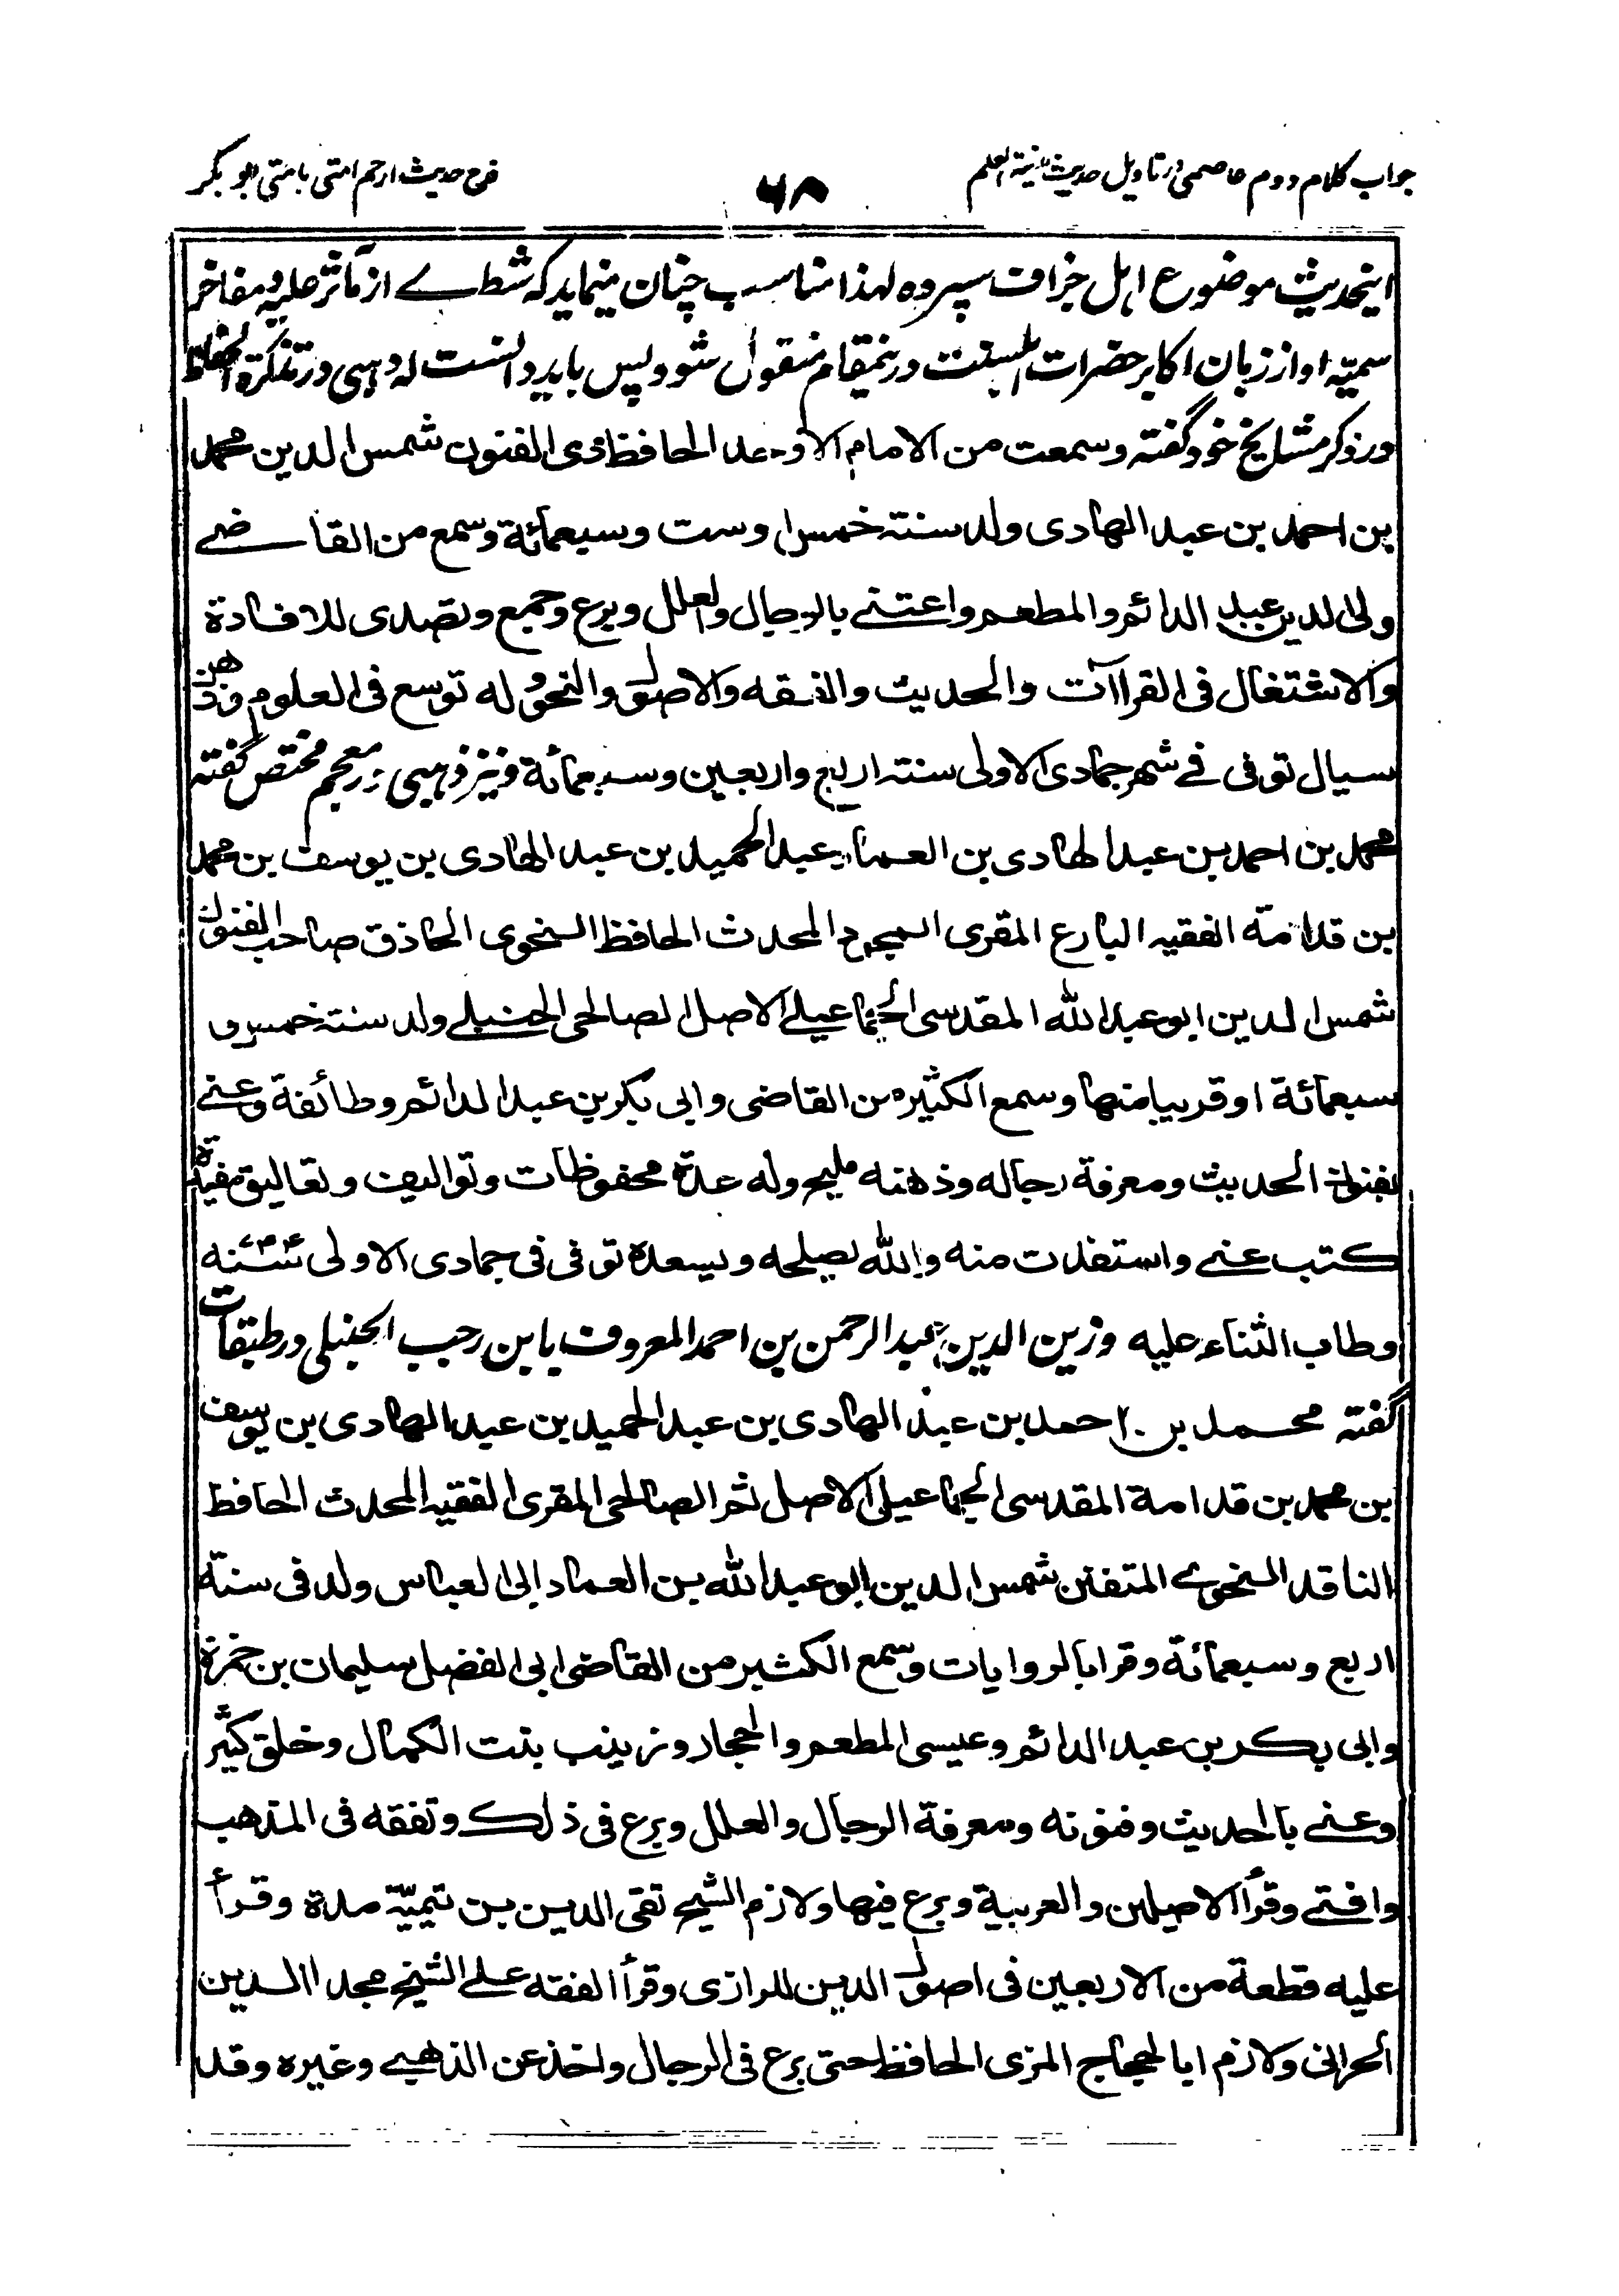 جواب کلام دوم عاصمی در تاویل حدیث مدینة العلم
۶۸
قدح حدیث ارحم امتی بامتی ابو بکر
اینحدیث موضوع اہل جزافت سپرده لہذا مناسب چنان مینماید که شطرے از مآثر علیه و مفاخر
سمیّه او از زبان اکابر حضرات اہلسنت درینمقام منقول شود پس باید دانست که ذہبی در تذکرة الحفاظ
در ذکر مشایخ خود گفته وسمعت من الامام الاوحد الحافظ ذی الفنون شمس الدین محمد
بن احمد بن عبد الهادی ولد سنة خمس او ست وسبعمائة وسمع من القاضے
ولی الدین عبد الدائم والمطعم واعتنے بالرجال والعلل وبرع وجمع وتصدی للافادة
والاشتغال فی القراآت والحدیث والفقه والاصول والنحو وله توسع فی العلوم وذهن
سیال توفی فے شهر جمادی الاولی سنة اربع واربعین وسبعمائة ونیز ذہبی در معجم مختص گفته
محمد بن احمد بن عبد الهادی بن العماد عبد الحمید بن عبد الهادی بن یوسف بن محمد
بن قدامة الفقیه البارع المقری المجود المحدث الحافظ النحوی الحاذق صاحب الفنون
شمس الدین ابو عبد الله المقدسی الجماعیلے الاصل الصالحی الحنبلے ولد سنة خمس و
سبعمائة او قریبا منها وسمع الکثیر من القاضی وابی بکر بن عبد الدائم وطائفة وعنے
بفنون الحدیث ومعرفة رجاله وذهنه ملیح وله عدة محفوظات وتوالیف وتعالیق مفیدة
کتب عنے واستفدت منه والله یصلحه ویسعده توفی فی جمادی الاولی سنة ۷۴۴
وطاب الثناء علیه وزین الدین عبد الرحمن بن احمد المعروف بابن رجب الحنبلی در طبقات
گفته محمد بن احمد بن عبد الهادی بن عبد الحمید بن عبد الهادی بن یوسف
بن محمد بن قدامة المقدسی الجماعیلی الاصل ثم الصالحی المقری الفقیه المحدث الحافظ
الناقد النحوے المتفنن شمس الدین ابو عبد الله بن العماد ابی العباس ولد فی سنة
اربع وسبعمائة وقرا بالروایات وسمع الکثیر من القاضی ابی الفضل سلیمان بن حمزة
وابی بکر بن عبد الدائم وعیسی المطعم والحجار وزینب بنت الکمال وخلق کثیر
وعنے بالحدیث وفنونه ومعرفة الرجال والعلل وبرع فی ذلک وتفقه فی المذهب
وافتے وقرأ الاصلین والعربیة وبرع فیها ولازم الشیخ تقی الدین بن تیمیّة مدة وقرأ
علیه قطعة من الاربعین فی اصول الدین للرازی وقرأ الفقه علے الشیخ مجد الدین
الحرانی ولازم ابا الحجاج المزی الحافظ حتی برع فی الرجال واخذ عن الذهبے وغیره وقد